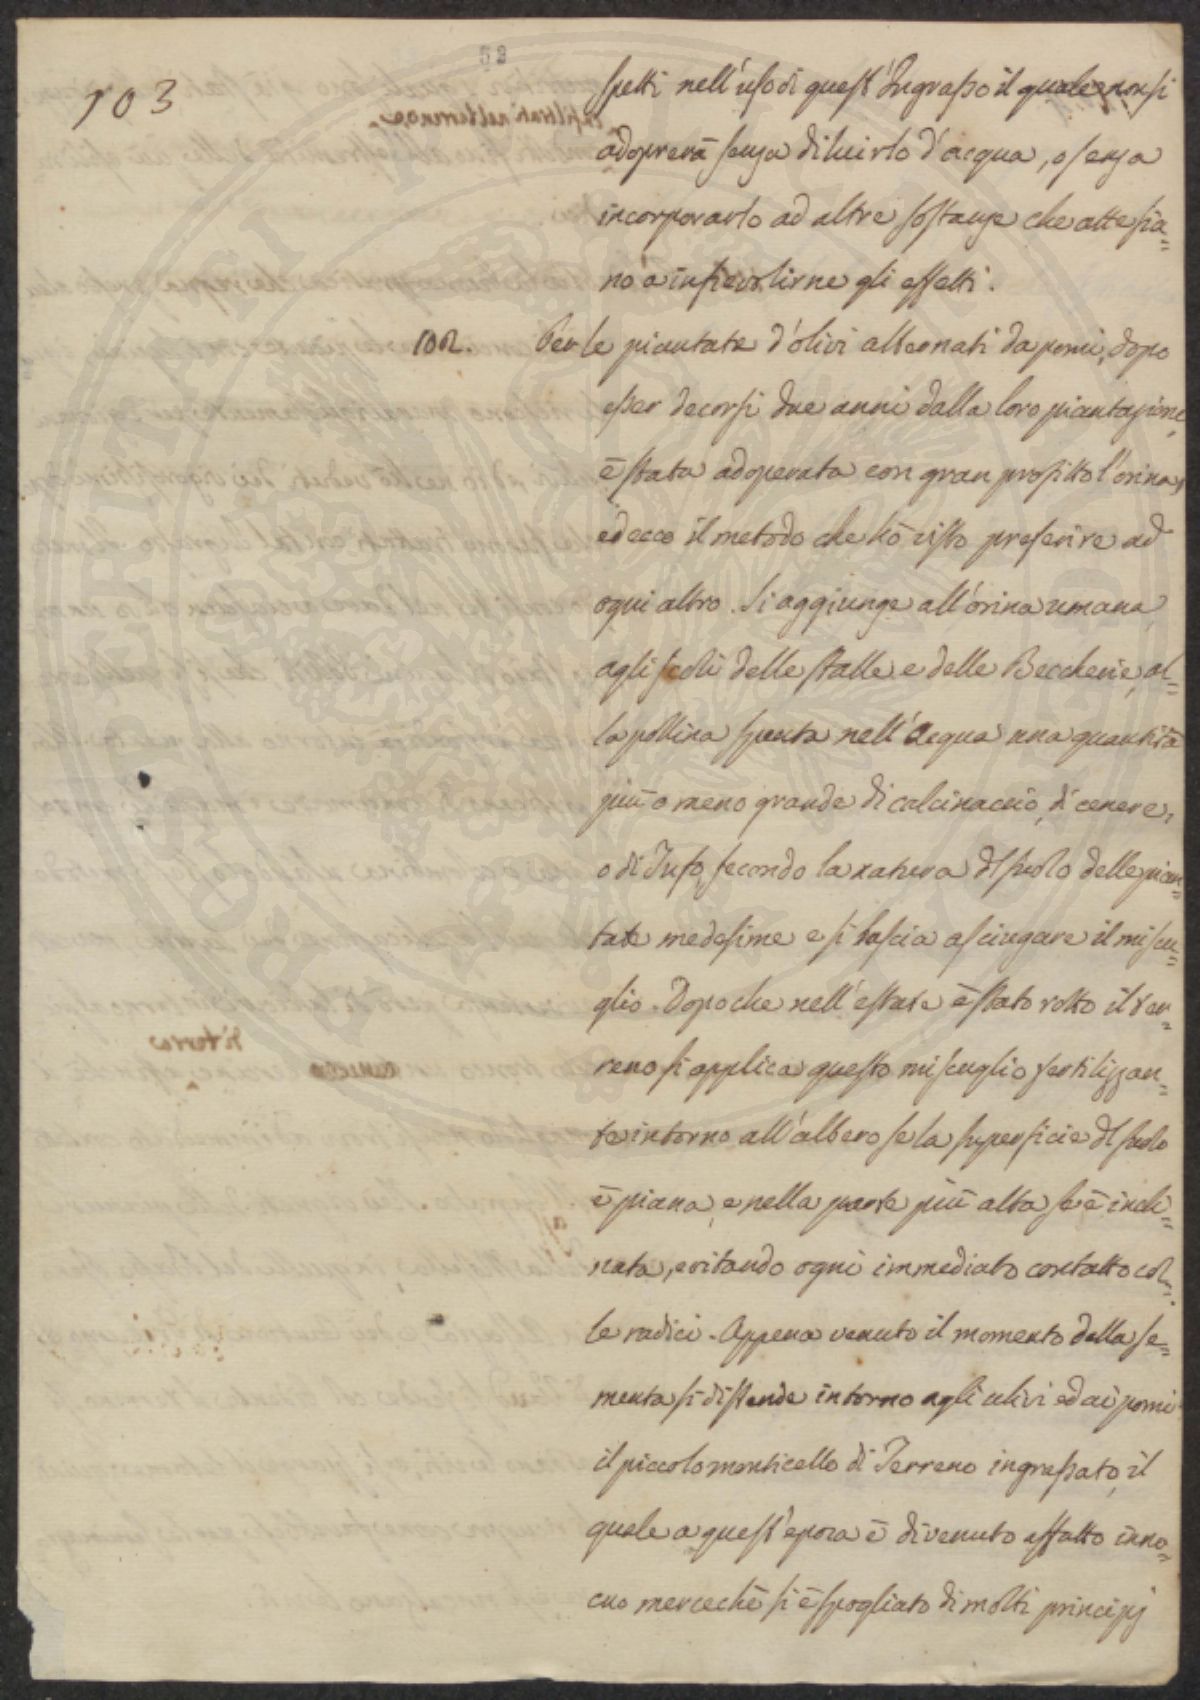 52
103
spetti nell'uso di quest'Ingrasso il quale non si
adoprerà senza diluirlo d'acqua, o senza
incorporarlo ad altre sostanze che atte sia=
no a infievolirne gli effetti.
102. Per le piantate d'olivi alternati da pomi, dopo
esser decorsi due anni dalla loro piantazione,
è stata adoperata con gran profitto l'orina,
ed ecco il metodo che hò visto preferire ad
ogni altro. Si aggiunge all'orina umana,
agli scoli delle stalle e delle Beccherie, al=
la pollina spenta nell'Acqua una quantità
più o meno grande di calcinaccio, di cenere,
o di Tufo, secondo la natura del suolo delle pian=
tate medesime e si lascia asciugare il miscu=
glio. Dopo che nell'estate è stato rotto il ter=
reno si applica questo miscuglio fertilizzan=
te intorno all'albero se la superficie del suolo
è piana, e nella parte più alta se è incli=
nata, evitando ogni immediato contatto col=
le radici. Appena venuto il momento della se=
menta si distende intorno agli ulivi ed ai pomi
il piccolo monticello di Terreno ingrassato, il
quale a quest'epoca è divenuto affatto inno=
cuo mercechè si è spogliato di molti principj